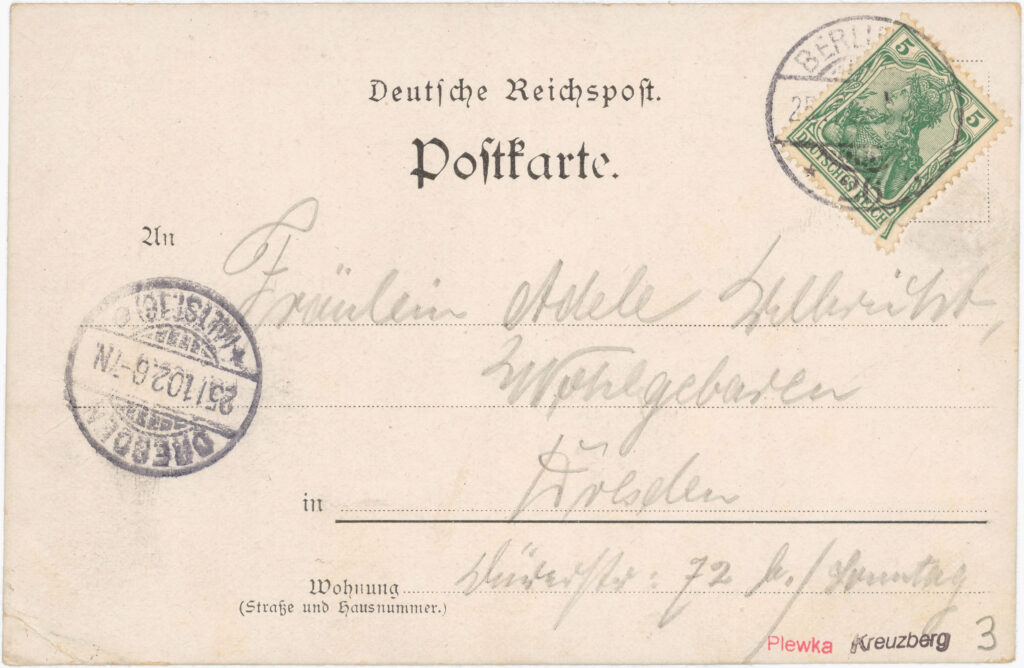 Deutsche Reichspost.
Postkarte.
BERLIN
5
5
DEUTSCHES REICH
An
Fräulein Adele
Wohlgeboren
in Dresden
Wohnung Dürerstr: 72 b./Sonntag
(Straße und Hausnummer.)
DRESDEN
25/1 02 6-7N
(ALTST.) 16
Plewka Kreuzberg 3